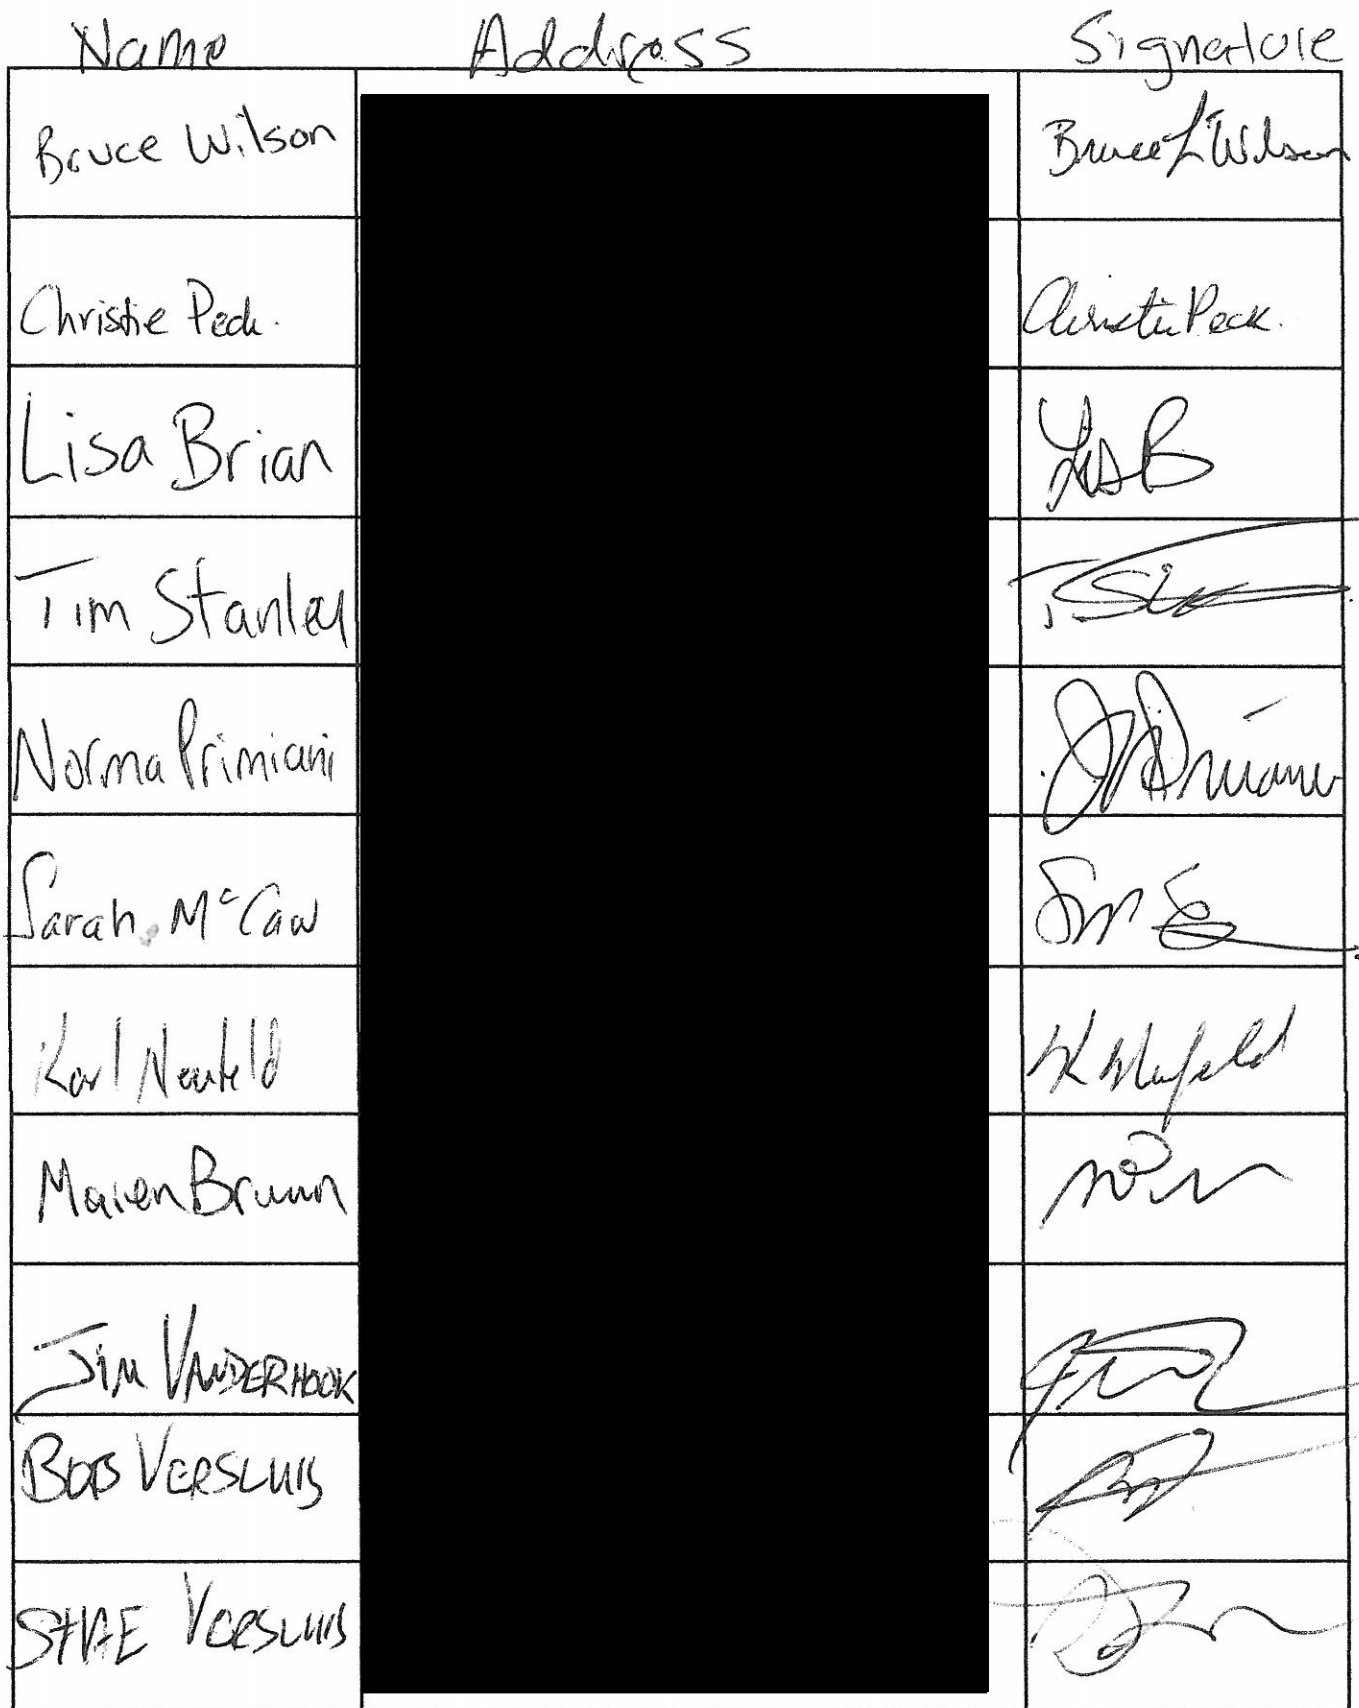 Name Address Signature
Bruce Wilson Bruce L Wilson
Christie Peck. Christie Peck.
Lisa Brian
Tim Stanley
Norma Primiani
Sarah McCaw
Karl Neufeld K Neufeld
Maren Brunn
Jim VANDERHOOK
BOB VERSLUIS
VERSLUIS